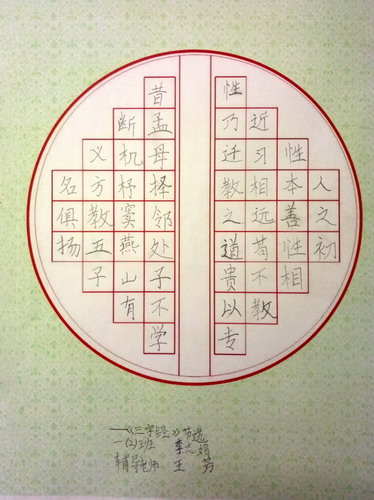 人之初
性本善性相
近习相远苟不教
性乃迁教之道贵以专
昔孟母择邻处子不学
断机杼窦燕山有
义方教五子
名俱扬
——《三字经》节选
一(2)班 李志娟
辅导老师 王芳